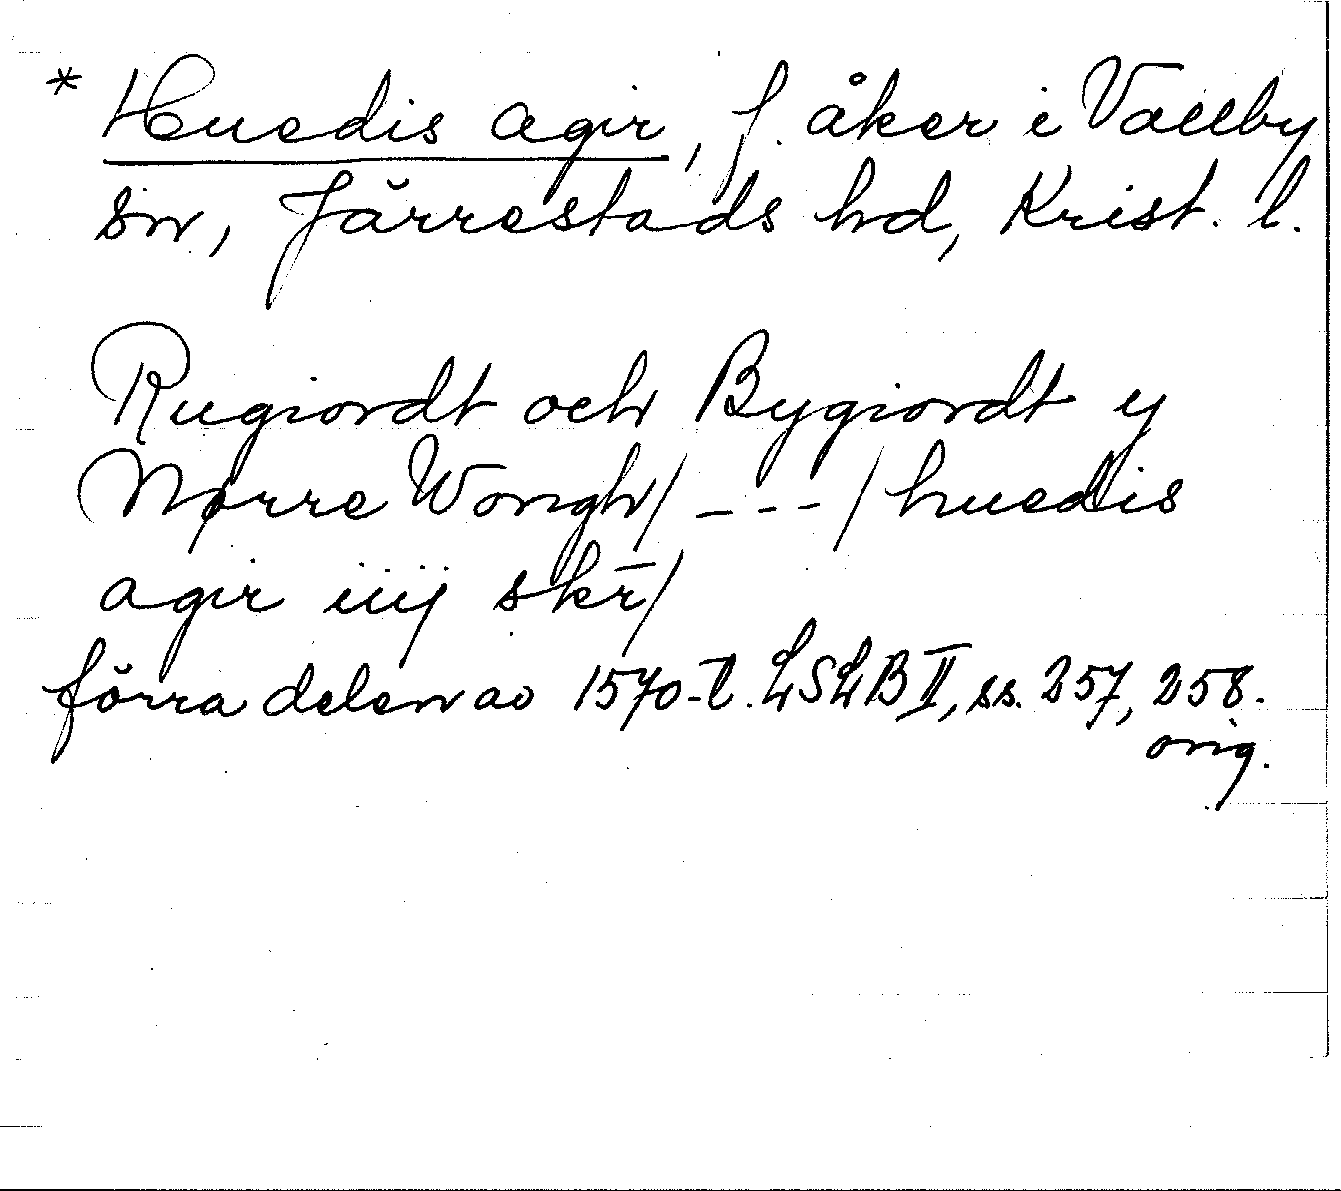 * Huedis agir, f. åker i Vallby
sn, Järrestads hd, Krist. l.
Rugiordt och Bygiordt y
Nørre Wongh/ _ - - - / huedis
agir iiij skr̄/
förra delen av 1570-t. LSLB II, ss. 257, 258.
orig.